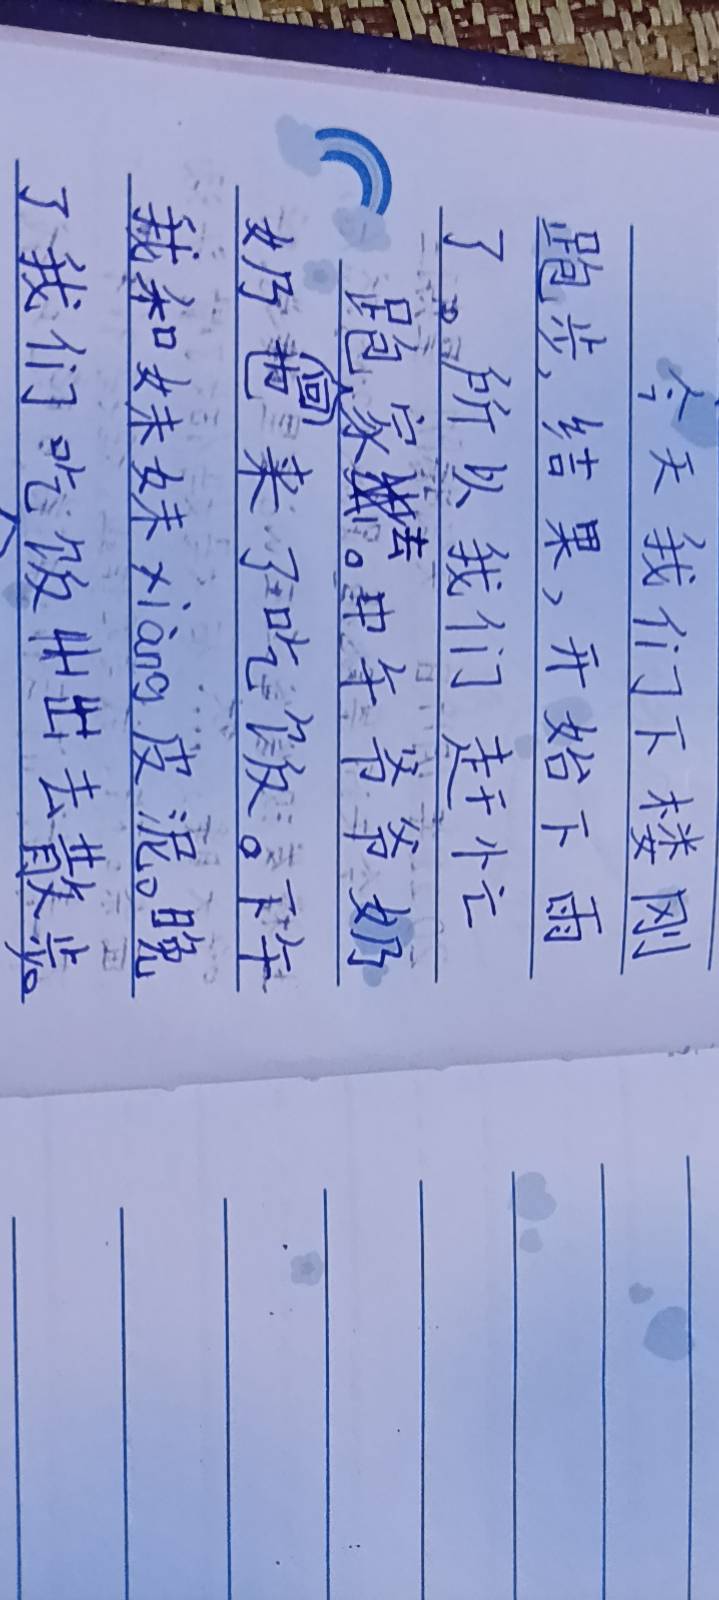 今天我们下楼刚
跑步,结果,开始下雨
了。所以我们赶小亡
跑回家去。中午爷爷奶
奶也来了吃饭。下午
我和妹妹xiàng皮泥。晚
了我们吃饭出去散步。